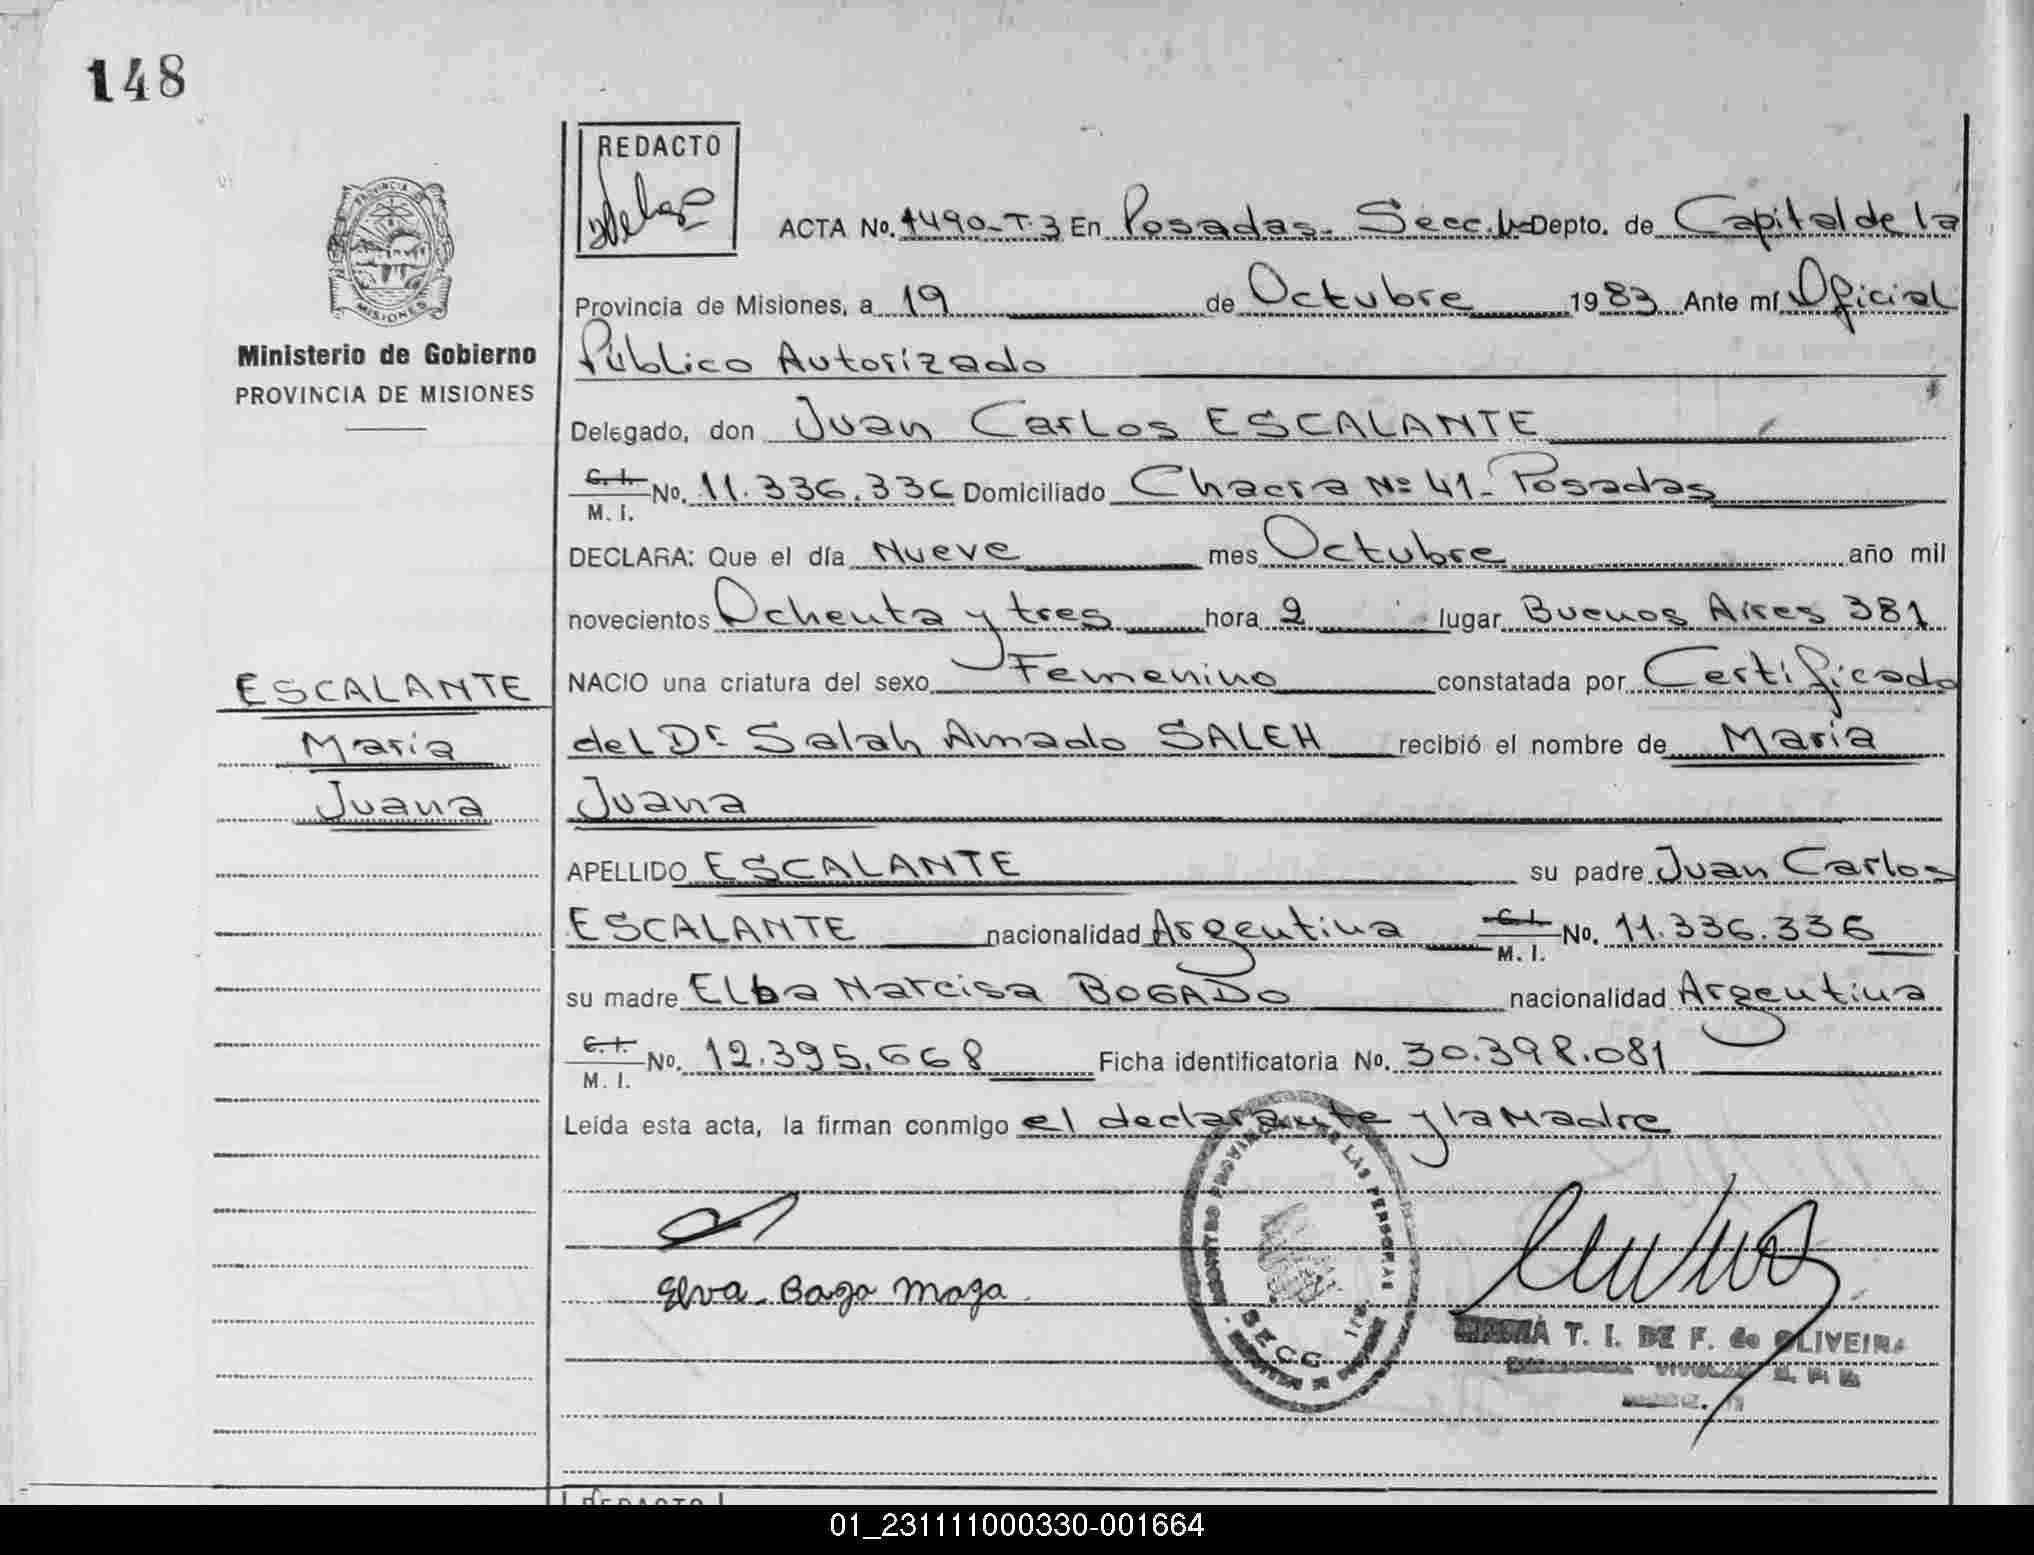 148
REDACTO
ACTA No. 1490-T.3 En Posadas.- Secc. 1= Depto. de Capital de la
Provincia de Misiones, a 19 de Octubre 1983 Ante mí Oficial
Ministerio de Gobierno
PROVINCIA DE MISIONES
Público Autorizado
Delegado, don Juan Carlos ESCALANTE
C. I.
M. I. No. 11.336.336 Domiciliado Chacra Nº 41- Posadas
DECLARA: Que el día Nueve mes Octubre año mil
novecientos Ochenta y tres hora 2 lugar Buenos Aires 381
NACIO una criatura del sexo Femenino constatada por Certificado
ESCALANTE
María
Juana
del Dr. Salah Amado SALEH recibió el nombre de María
Juana
APELLIDO ESCALANTE su padre Juan Carlos
ESCALANTE nacionalidad Argentina C. I. M. I. No. 11.336.336
su madre Elba Narcisa BOGADO nacionalidad Argentina
C. I.
M. I. No. 12.395.668 Ficha identificatoria No. 30.398.081
Leída esta acta, la firman conmigo el declarante y la Madre
Elva. Bago Maga
LAS PERSONAS
SECC 1ra.
MARIA T. I. DE F. de OLIVEIRA
01_231111000330-001664